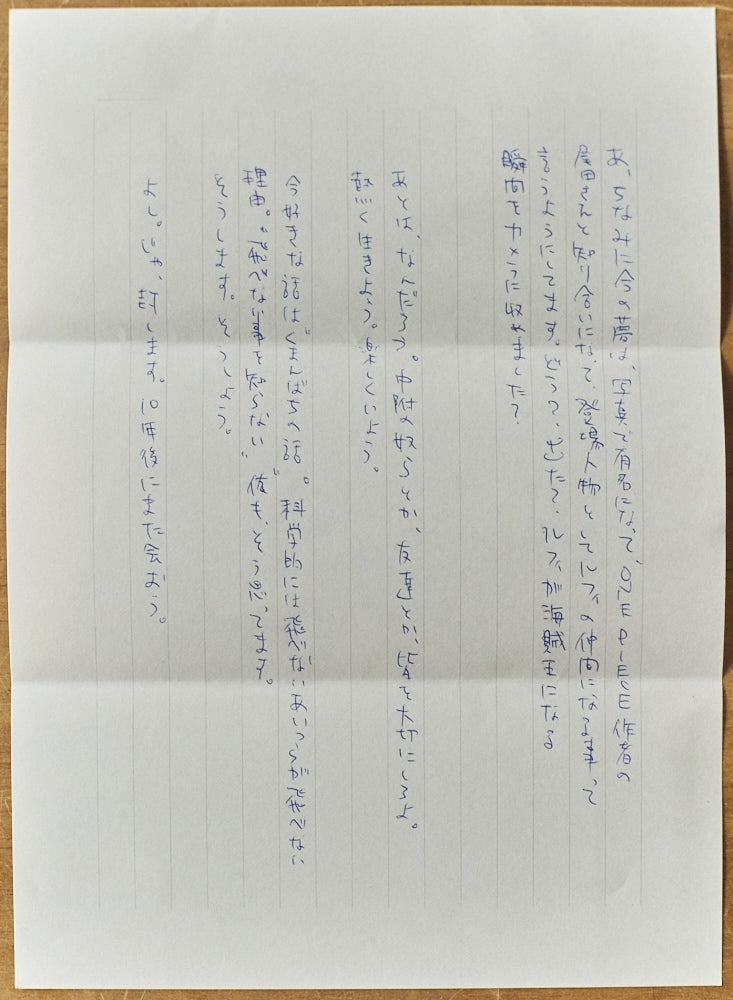 あ、ちなみに今の夢は、写真で有名になって、ONE PIECE作者の
尾田さんと知り合いになって、登場人物としてルフィの仲間になる事って
言うようにしてます。どうっ、もたっ、ルフィが海賊王になる
瞬間をカメラに収めました？
あとは、なんだろう。中附の奴らとか、友達とか、皆を大切にしろよ。
熱く生きよう。楽しくいよう。
今好きな話は“くまんばちの話”。科学的には飛べないあいつらが飛べない
理由。“飛べない事を知らない”俺も、そう思ってます。
そうします。そうしよう。
よし。じゃ、封します。10年後にまた会おう。